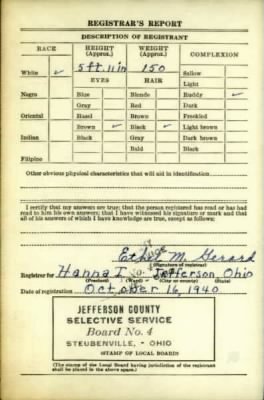 REGISTRAR'S REPORT
DESCRIPTION OF REGISTRANT
RACE HEIGHT (Approx.) WEIGHT (Approx.) COMPLEXION
White ✓ 5 ft. 11 in 150 Sallow
EYES HAIR Light
Negro Blue Blonde Ruddy ✓
Gray Red Dark
Oriental Hazel Brown Freckled
Brown ✓ Black ✓ Light brown
Indian Black Gray Dark brown
Bald Black
Filipino
Other obvious physical characteristics that will aid in identification
I certify that my answers are true; that the person registered has read or has had
read to him his own answers; that I have witnessed his signature or mark and that
all of his answers of which I have knowledge are true, except as follows:
Ethel M. Gerard
(Signature of registrar)
Registrar for Hanna I Jefferson, Ohio
(Precinct) (Ward) (City or county) (State)
Date of registration October 16, 1940
JEFFERSON COUNTY
SELECTIVE SERVICE
Board No. 4
STEUBENVILLE, - OHIO
(STAMP OF LOCAL BOARD)
(The stamp of the Local Board having jurisdiction of the registrant
shall be placed in the above space.)